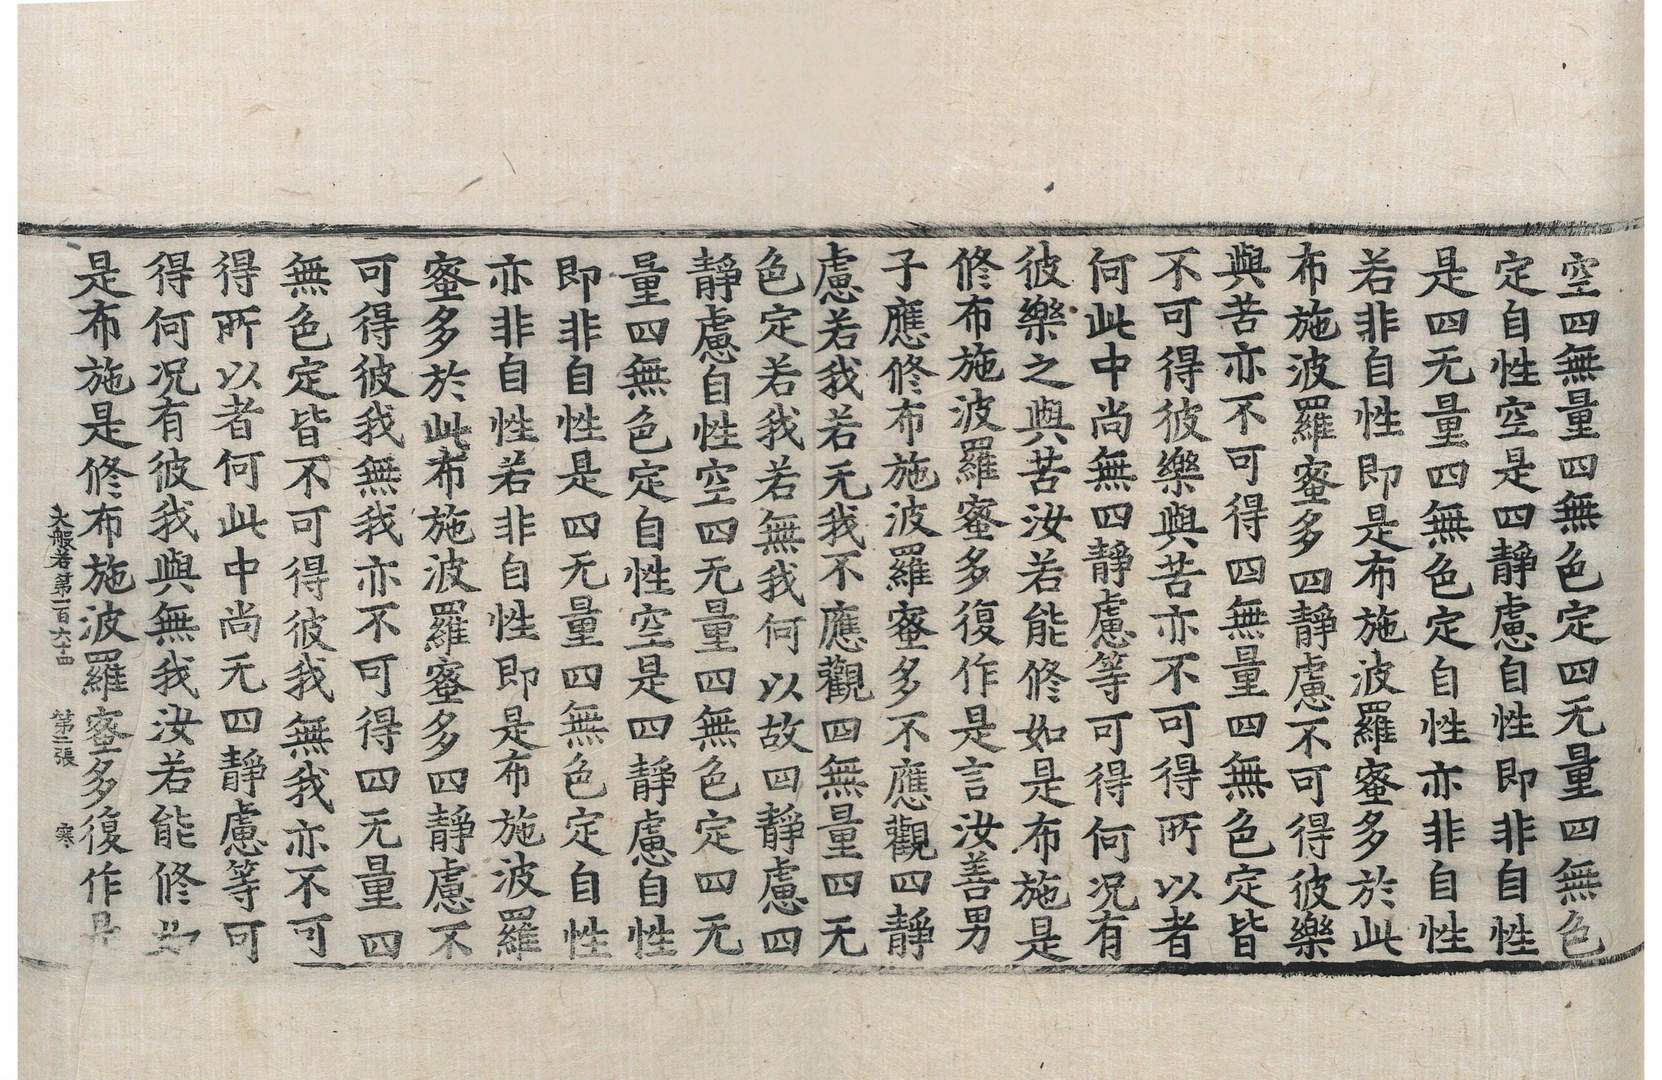 空四無量四無色定四无量四無色
定自性空是四靜慮自性即非自性
是四无量四無色定自性亦非自性
若非自性即是布施波羅蜜多於此
布施波羅蜜多四靜慮不可得彼樂
與苦亦不可得四無量四無色定皆
不可得彼樂與苦亦不可得所以者
何此中尚無四靜慮等可得何况有
彼樂之與苦汝若能修如是布施是
修布施波羅蜜多復作是言汝善男
子應修布施波羅蜜多不應觀四靜
慮若我若无我不應觀四無量四无
色定若我若無我何以故四靜慮四
靜慮自性空四无量四無色定四无
量四無色定自性空是四靜慮自性
即非自性是四无量四無色定自性
亦非自性若非自性即是布施波羅
蜜多於此布施波羅蜜多四靜慮不
可得彼我無我亦不可得四无量四
無色定皆不可得彼我無我亦不可
得所以者何此中尚无四靜慮等可
得何况有彼我與無我汝若能修如
是布施是修布施波羅蜜多復作是
大般若第一百六十四 第二張 寒